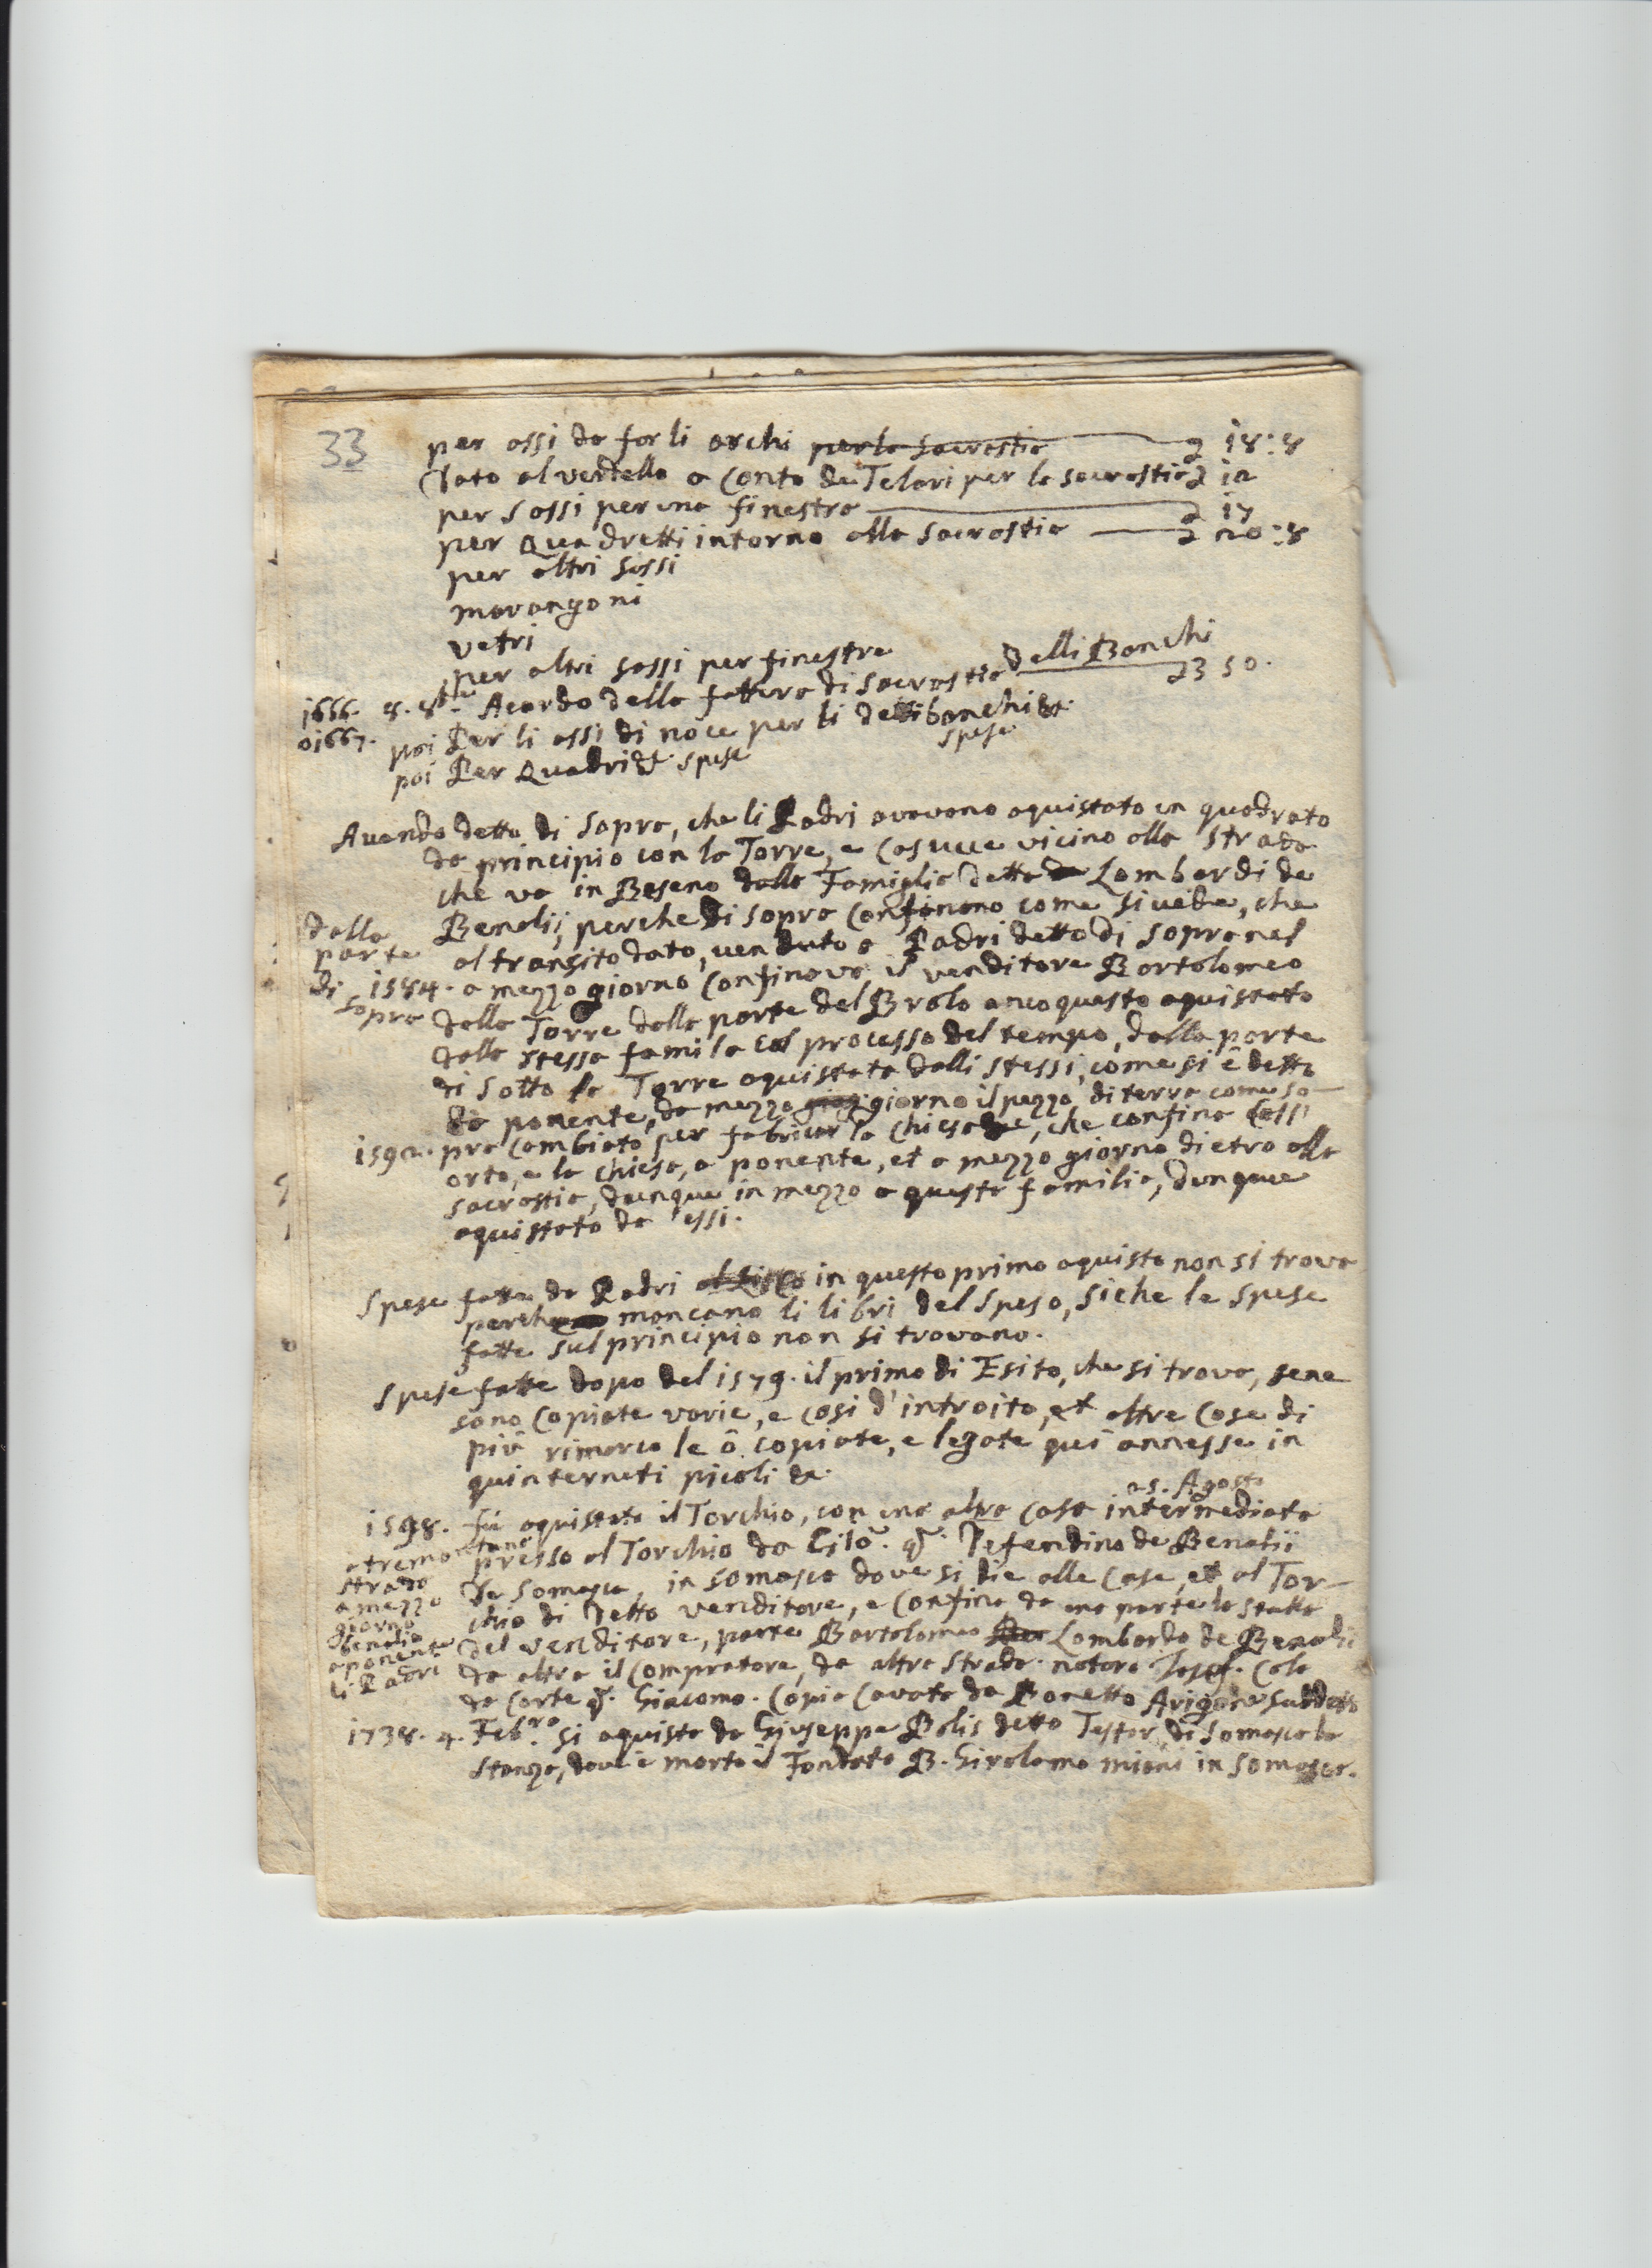 33
per assi da far li archi per la sacrastia 2 18:8
Dato al verdello a Conto de Telari per la sacrastia 2 12
per sassi per una finestra 2 17
per Quadretti intorno alla sacrastia 2 20:8
per altri sassi
marangoni
vetri
per altri sassi per finestre
1666. 8. 8bre Acordo della fattura di sacrastia delli Banchi 23 50.
o 1667. poi Per li assi di noce per li detti banchi &.
spese
poi Per Quadri &. spese
Auendo detto di sopra, che li Padri avevano aquistato un quadrato
da principio con la Torre, e Casucce vicino alla strada
che va in Beseno dalla Famiglia detta Lombardi de
Benalij, perche di sopra Confinano come si uede, che
al transito dato, uenduto a Padri detto di sopra nel
dalla parte di sopra
1584. a mezzo giorno Confinava il venditore Bartolomeo
dalla Torre dalla parte del Brolo anco questo aquistato
dalla stessa famila Col processo del tempo, dalla parte
di sotto la Torre aquistata dalli stessi, come si è detto
da ponente, da mezzo giorno il pezzo di terra come so-
1592. pra Cambiato per fabricar la chiesa, che confina Cassi
orto, e la chiesa, a ponente, et a mezzo giorno dietro alla
sacrastia, dunque in mezzo a questa familia, dunque
aquistato da essi.
Spese fatte da Padri in questo primo aquisto non si trova
perche mancano li libri del speso, siche le spese
fatte sul principio non si trovano.
Spese fatte dopo del 1579. il primo di Esito, che si trova, sene
sono Copiate varie, e cosi d'introito, et altre Cose di
più rimarco le ô copiate, e legate qui annesse in
quinterneti picoli &.
25. Agosto
1598. fù aquistato il Torchio, con una altra Casa intermediata
presso al Torchio da Gilõ. q. Defendino de Benalij
de Somasca, in somasca dove si die alle Case, et al Tor-
chio di detto venditore, e Confina da una parte la stalla
del venditore, parte Bartolomeo Lombardo de Benalij
da altra il Compratore, da altra strada. notaro Josef. Cola
da Corte q. Giacomo. Copia Cavata da Bonetto Arigoni Suddetto
a tramontana
strada
a mezzo
giorno
benalio
a ponente
li Padri
1738. 4. Febro. si aquista da Giuseppe Bolis detto Testor, di somasca la
stanza, dove è morto il Fondato B. Girolamo miani in somasca.